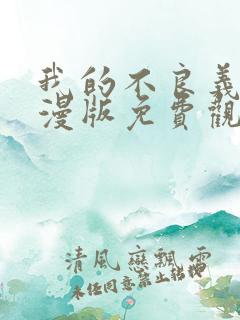 我的不良義
漫版免費觀
清風戀飄雪
未任同意禁止轉載